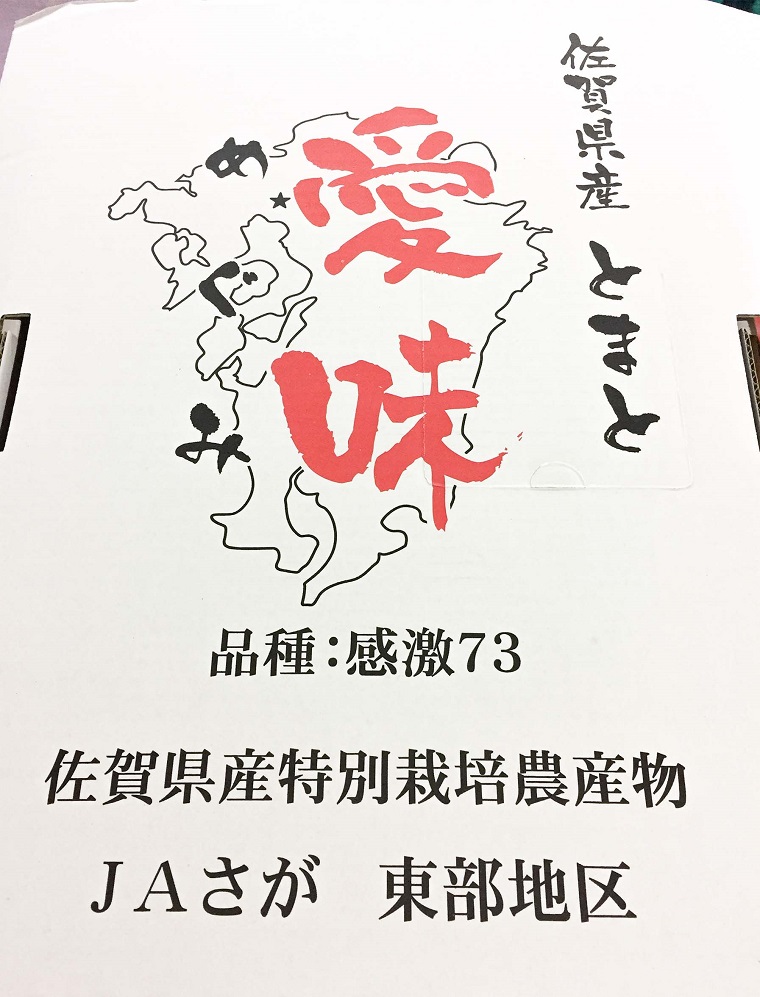 佐賀県産
とまと
愛味
めぐみ
品種：感激73
佐賀県産特別栽培農産物
JAさが　東部地区